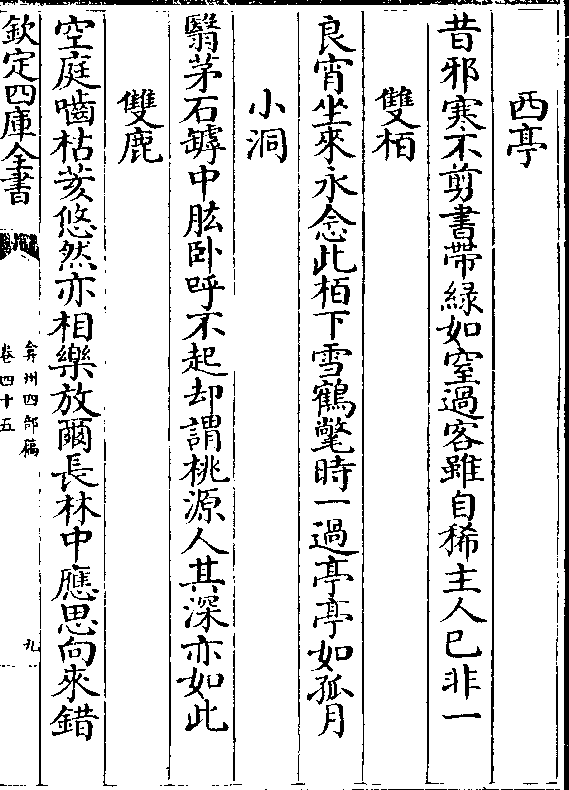 西亭
昔邪寒不剪書帶緑如窒過客雖自稀主人已非一
雙栢
良宵坐來永念此栢下雪鶴氅時一過亭亭如孤月
小洞
翳茅石罅中肱卧呼不起却謂桃源人其深亦如此
雙鹿
空庭嚙枯荄悠然亦相樂放爾長林中應思向來錯
欽定四庫全書
弇州四部稿
卷四十五
九